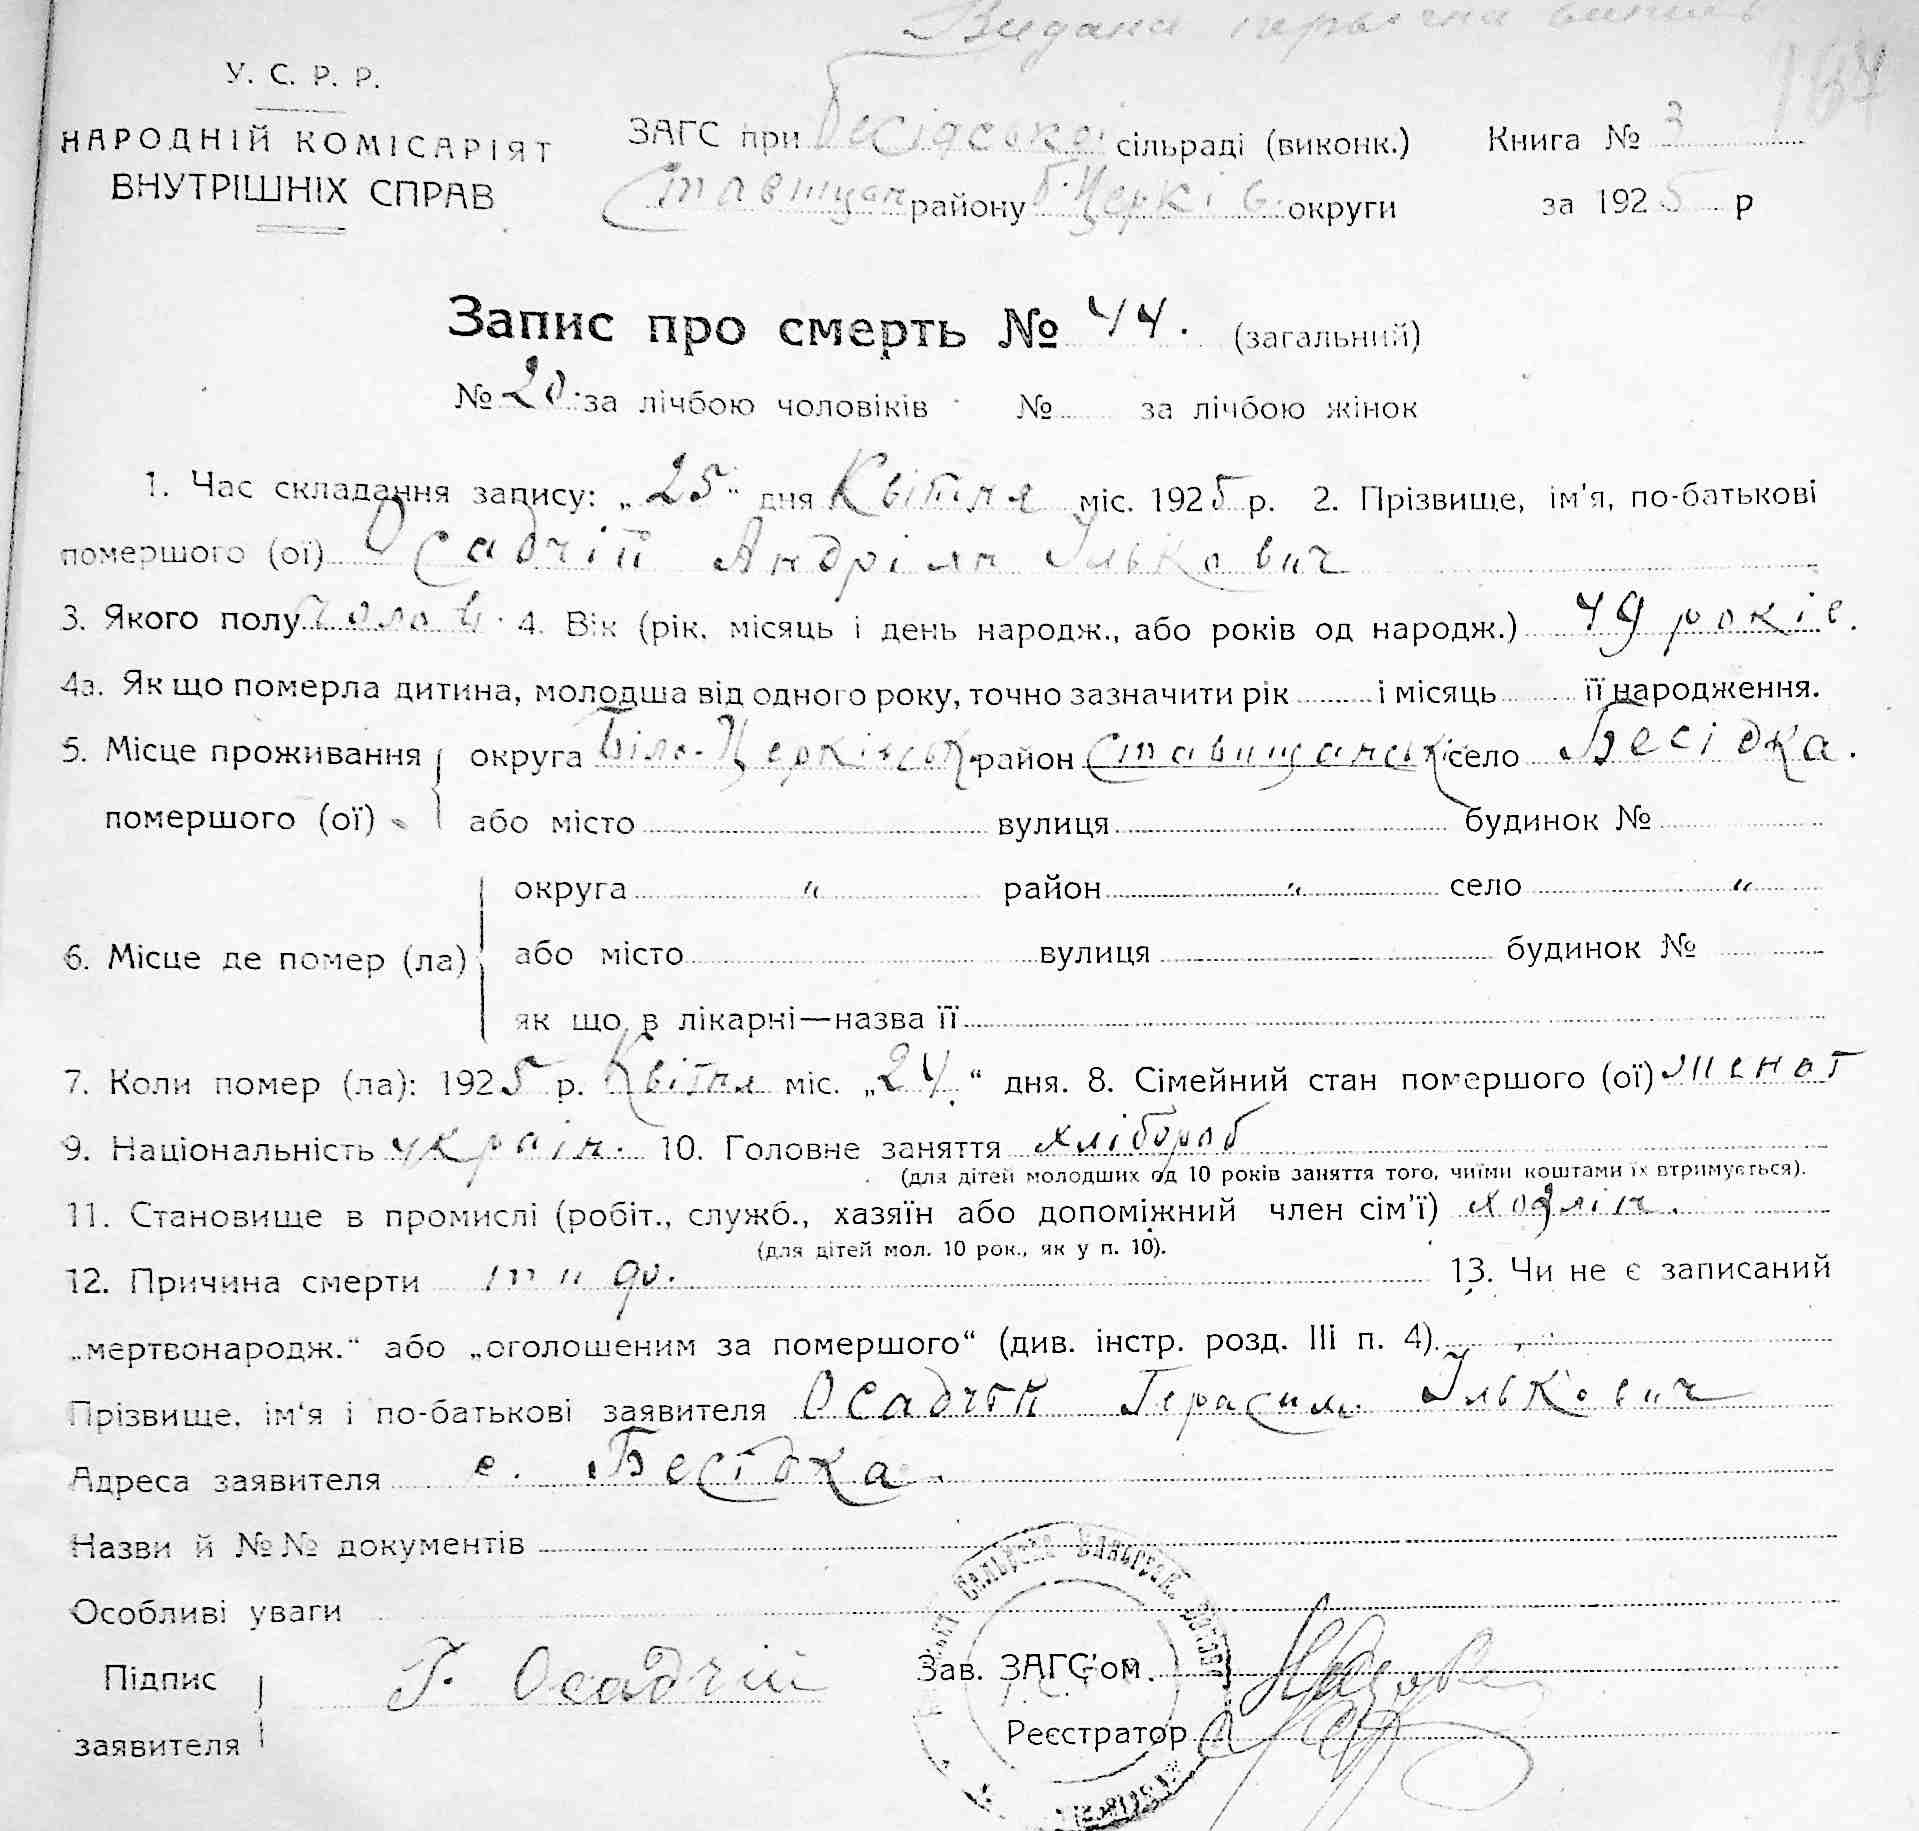 Видана
167
У. С. Р. Р.
НАРОДНІЙ КОМІСАРІЯТ
ВНУТРІШНІХ СПРАВ
ЗАГС при Бесідській сільраді (виконк.) Книга № 3
Ставищан району Б. Церків. округи за 1925 р
Запис про смерть № 44. (загальний)
№ 20. за лічбою чоловіків № за лічбою жінок
1. Час складання запису: „25“ дня Квітня міс. 1925 р. 2. Прізвище, ім'я, по-батькові
помершого (ої) Осадчій Андріян Ількович
3. Якого полу чолов. 4. Вік (рік, місяць і день народж., або років од народж.) 49 років.
4а. Як що померла дитина, молодша від одного року, точно зазначити рік і місяць її народження.
5. Місце проживання округа Біло-Церківськ район Ставищанськ село Бесідка.
помершого (ої) або місто вулиця будинок №
округа " район " село "
6. Місце де помер (ла) або місто вулиця будинок №
як що в лікарні—назва її
7. Коли помер (ла): 1925 р. Квітня міс. „24“ дня. 8. Сімейний стан помершого (ої) женат
9. Національність україн. 10. Головне заняття хлібороб
(для дітей молодших од 10 років заняття того, чиїми коштами їх втримується).
11. Становище в промислі (робіт., служб., хазяїн або допоміжний член сім'ї)
(для дітей мол. 10 рок., як у п. 10).
12. Причина смерти тиф. 13. Чи не є записаний
„мертвонародж.“ або „оголошеним за помершого“ (див. інстр. розд. III п. 4).
Прізвище, ім'я і по-батькові заявителя Осадчій Герасим Ількович
Адреса заявителя с. Бесідка.
Назви й №№ документів
Особливі уваги
Підпис
заявителя Г. Осадчій
Зав. ЗАГС'ом
Реєстратор